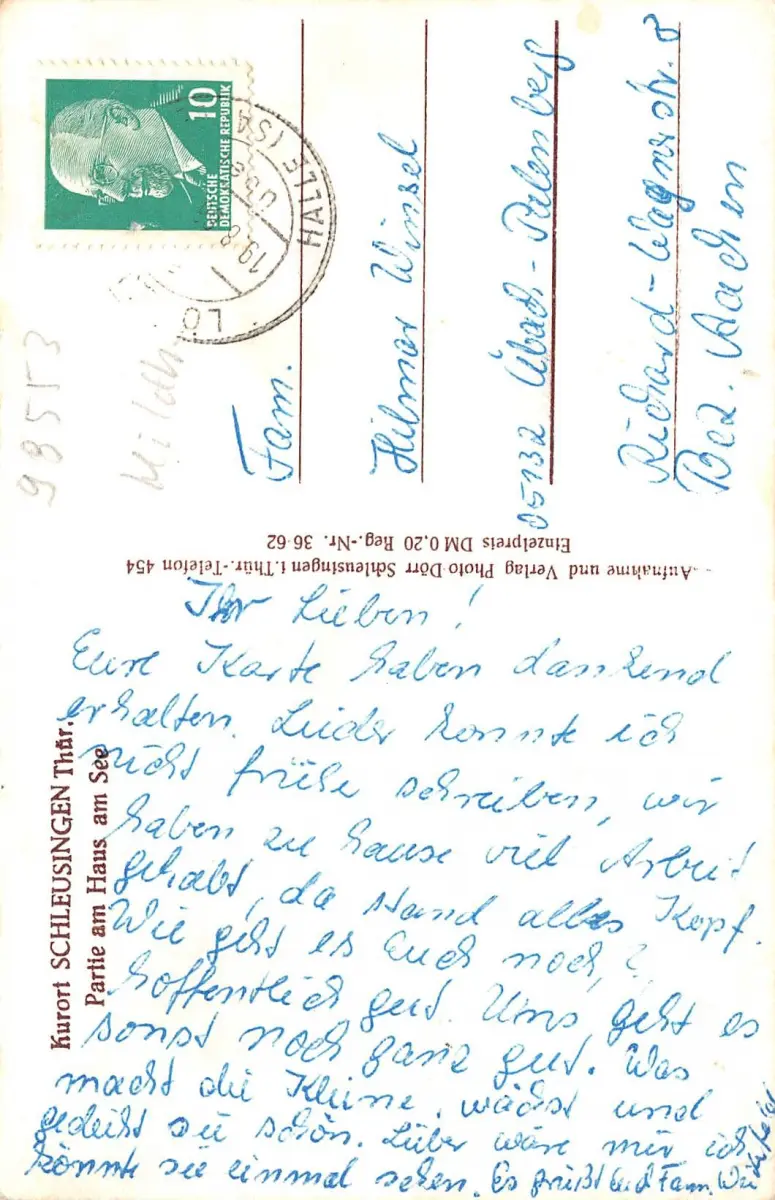 Kurort SCHLEUSINGEN Thür.
Partie am Haus am See
Ihr Lieben!
Eure Karte haben dankend
erhalten. Leider konnte ich
nicht frühe schreiben, wir
haben zu hause viel Arbeit
gehabt, da stand alles Kopf.
Wie geht es Euch noch,?
hoffentlich gut. Uns geht es
sonst noch ganz gut. Was
macht die Kleine, wächst und
gedeiht sie schön. Lieber wäre mir ich
könnte sie einmal sehen. Es grüßt Euch Fam.
Aufnahme und Verlag Photo-Dörr Schleusingen i. Thür.-Telefon 454
Einzelpreis DM 0,20 Reg.-Nr. 36-62
10
DEUTSCHE
DEMOKRATISCHE REPUBLIK
HALLE
LÖ
Fam.
Hilmar Winsel
05132 Übach-Palenberg
Richard-Wagnerstr. 5
Bez. Aachen
98553